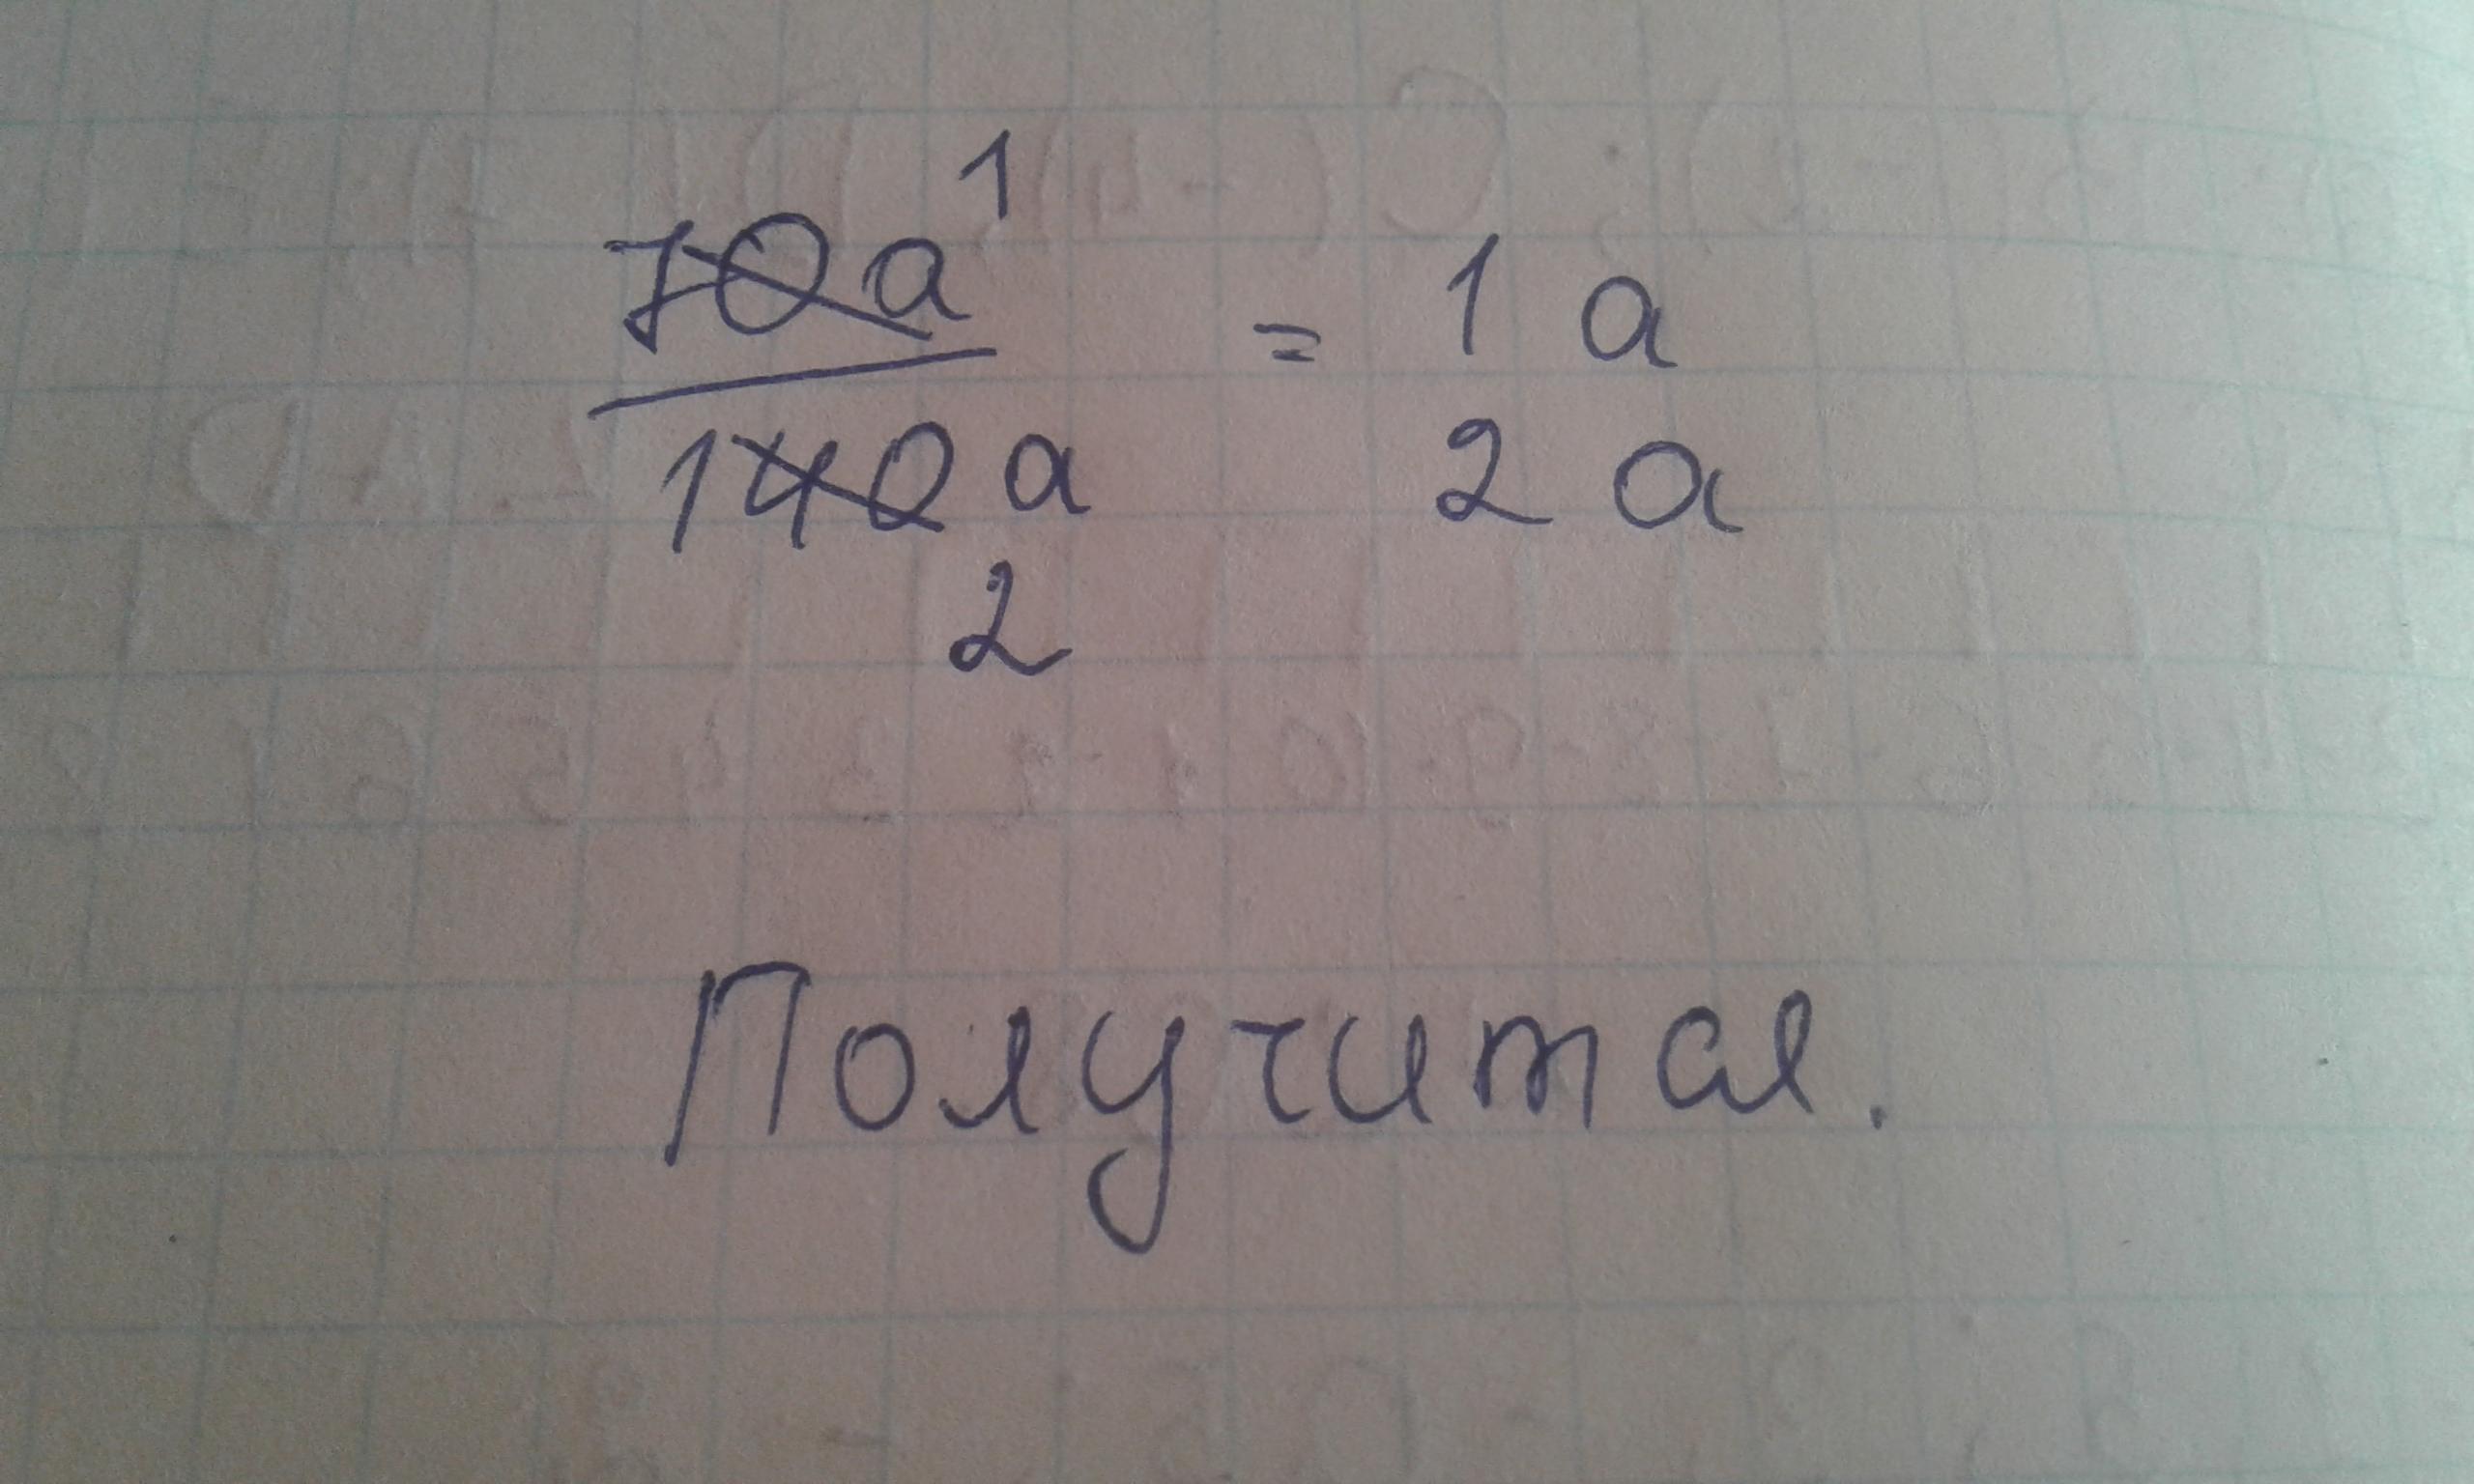 1
70a = 1 a
140 a 2 a
2
Получится.